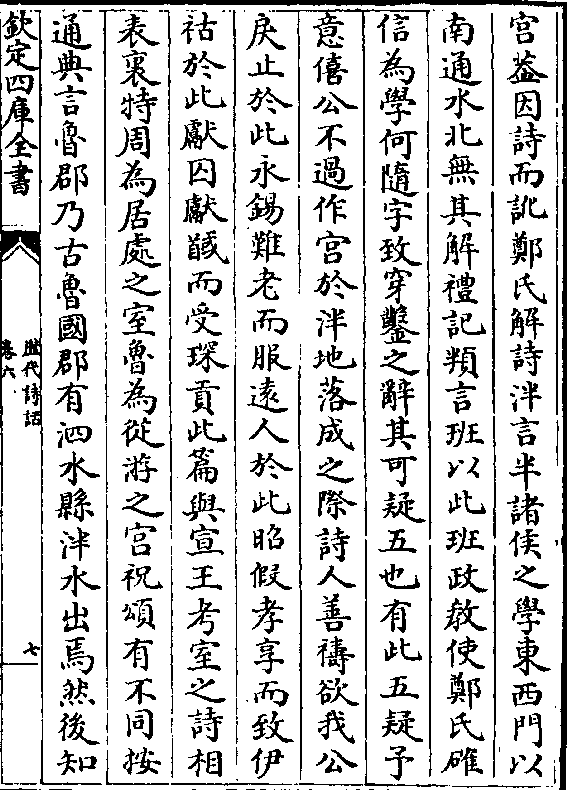 宮葢因詩而訛鄭氏解詩泮言半諸侯之學東西門以
南通水北無其解禮記頖言班以此班政教使鄭氏確
信為學何隨字致穿鑿之辭其可疑五也有此五疑予
意僖公不過作宮於泮地落成之際詩人善禱欲我公
戾止於此永錫難老而服遠人於此昭假孝享而致伊
祜於此獻囚獻馘而受琛貢此篇與宣王考室之詩相
表裏特周為居處之室魯為從游之宮祝頌有不同按
通典言魯郡乃古魯國郡有泗水縣泮水出焉然後知
欽定四庫全書
歷代詩話
卷六
七